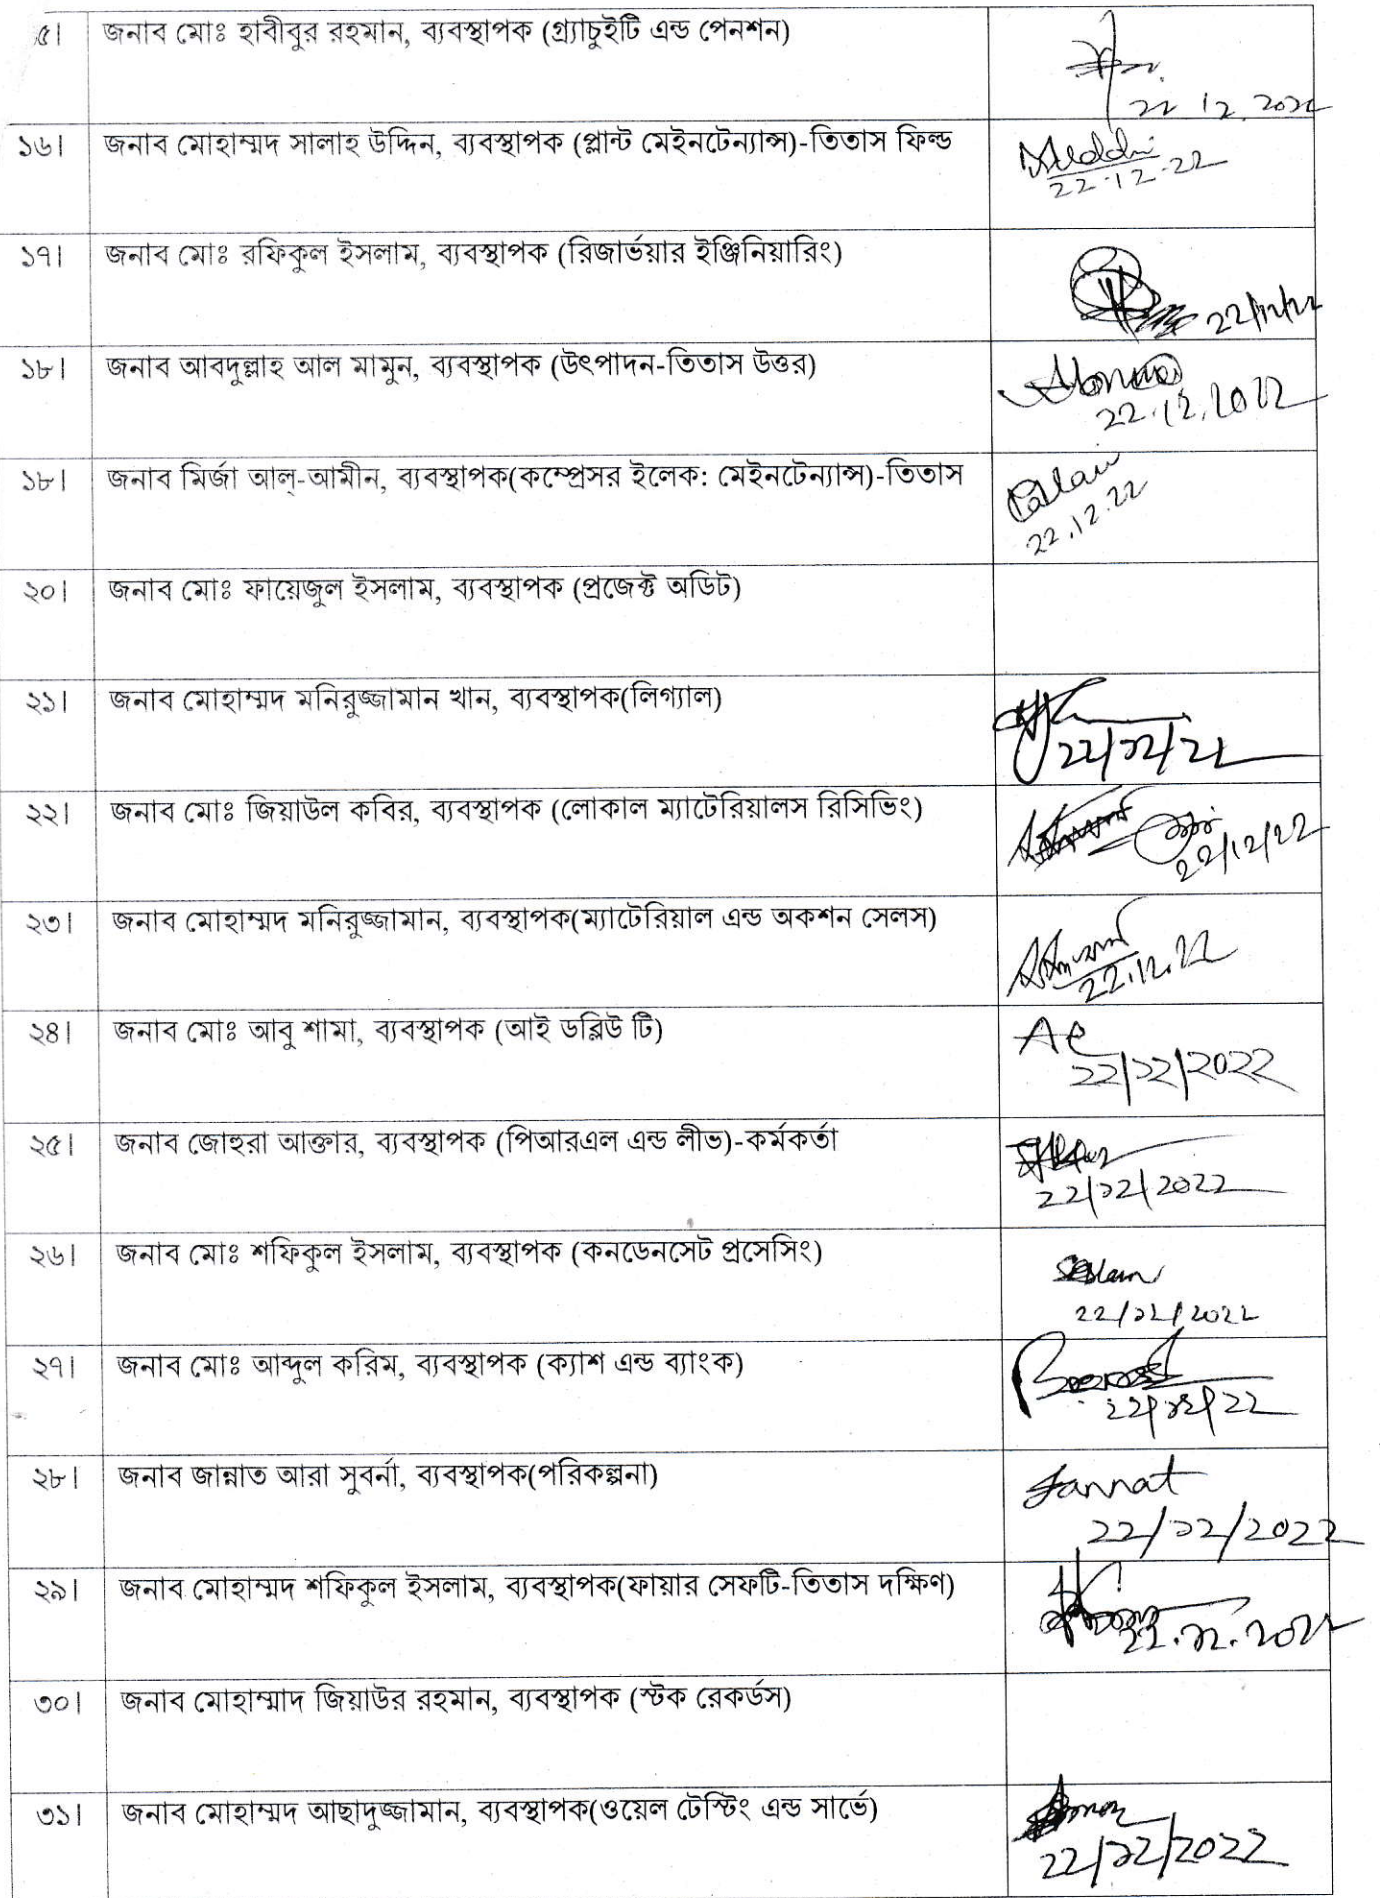 ৫।	জনাব মোঃ হাবীবুর রহমান, ব্যবস্থাপক (গ্র্যাচুইটি এন্ড পেনশন)
22 12. 2022
১৬।	জনাব মোহাম্মদ সালাহ উদ্দিন, ব্যবস্থাপক (প্লান্ট মেইনটেন্যান্স)-তিতাস ফিল্ড
22.12.22
১৭।	জনাব মোঃ রফিকুল ইসলাম, ব্যবস্থাপক (রিজার্ভয়ার ইঞ্জিনিয়ারিং)
22/12/22
১৮।	জনাব আবদুল্লাহ আল মামুন, ব্যবস্থাপক (উৎপাদন-তিতাস উত্তর)
22.12.2022
১৮।	জনাব মির্জা আল্-আমীন, ব্যবস্থাপক(কম্প্রেসর ইলেক: মেইনটেন্যান্স)-তিতাস
22.12.22
২০।	জনাব মোঃ ফায়েজুল ইসলাম, ব্যবস্থাপক (প্রজেক্ট অডিট)
২১।	জনাব মোহাম্মদ মনিরুজ্জামান খান, ব্যবস্থাপক(লিগ্যাল)
22/12/22
২২।	জনাব মোঃ জিয়াউল কবির, ব্যবস্থাপক (লোকাল ম্যাটেরিয়ালস রিসিভিং)
22/12/22
২৩।	জনাব মোহাম্মদ মনিরুজ্জামান, ব্যবস্থাপক(ম্যাটেরিয়াল এন্ড অকশন সেলস)
22.12.22
২৪।	জনাব মোঃ আবু শামা, ব্যবস্থাপক (আই ডব্লিউ টি)
22/12/2022
২৫।	জনাব জোহুরা আক্তার, ব্যবস্থাপক (পিআরএল এন্ড লীভ)-কর্মকর্তা
22/12/2022
২৬।	জনাব মোঃ শফিকুল ইসলাম, ব্যবস্থাপক (কনডেনসেট প্রসেসিং)
22/12/2022
২৭।	জনাব মোঃ আব্দুল করিম, ব্যবস্থাপক (ক্যাশ এন্ড ব্যাংক)
22/12/22
২৮।	জনাব জান্নাত আরা সুবর্না, ব্যবস্থাপক(পরিকল্পনা)
Jannat
22/12/2022
২৯।	জনাব মোহাম্মদ শফিকুল ইসলাম, ব্যবস্থাপক(ফায়ার সেফটি-তিতাস দক্ষিণ)
22.12.2022
৩০।	জনাব মোহাম্মাদ জিয়াউর রহমান, ব্যবস্থাপক (স্টক রেকর্ডস)
৩১।	জনাব মোহাম্মদ আছাদুজ্জামান, ব্যবস্থাপক(ওয়েল টেস্টিং এন্ড সার্ভে)
22/12/2022